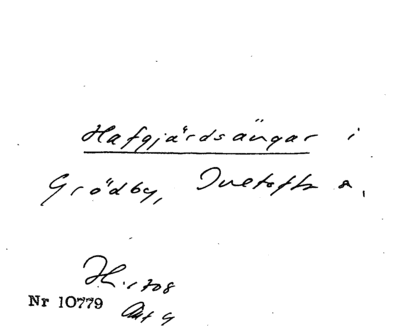 Hafgjärdsängar i
Grödby, Tuetofta s.
H. 1708
Nr 10779
Akt 9